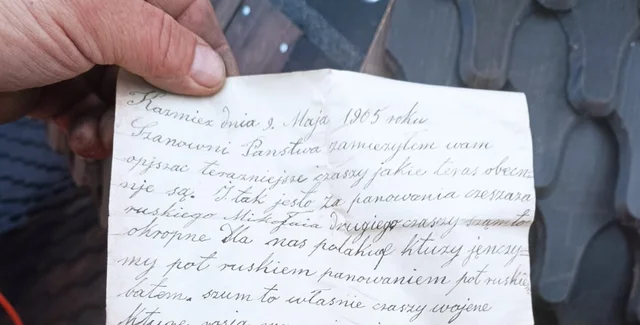 Kazmiez dnia 9. Maja 1905 roku
Szanowni Państwa zamiezyłem wam
opjszac terazniejsze czaszy jakie teras obecn=
nje są. I tak jesto za panowania czeszaza
ruskiego Mikołaia drugiego czaszy szam to
okropne Dla nas polakuf ktuzy jenczy=
my pot ruskiem panowaniem pot ruskiem
batem. szum to właśnie czaszy wojene